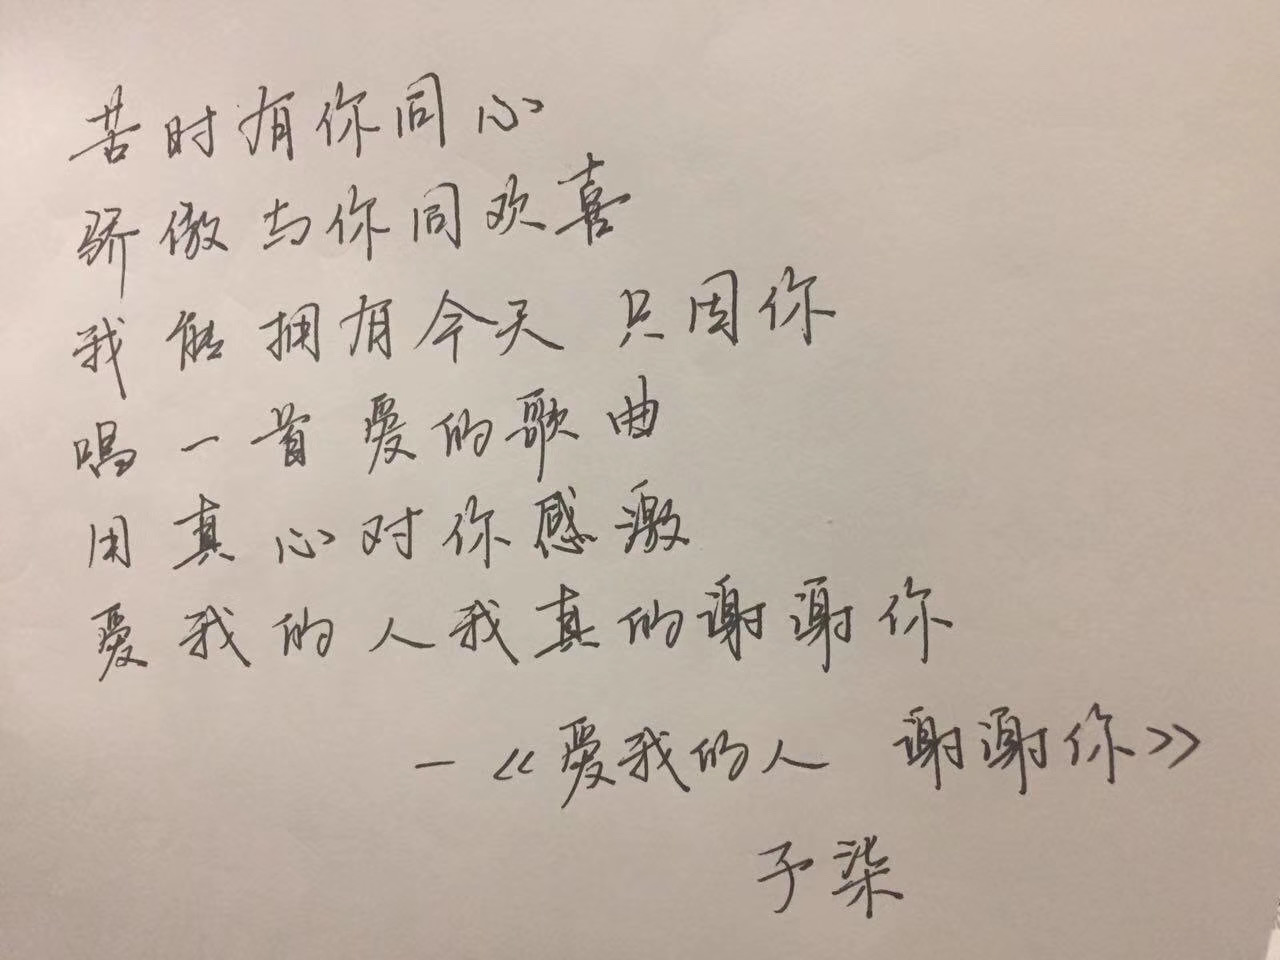 苦时有你同心
骄傲与你同欢喜
我能拥有今天 只因你
唱一首爱的歌曲
用真心对你感激
爱我的人我真的谢谢你
—《爱我的人 谢谢你》
予柒